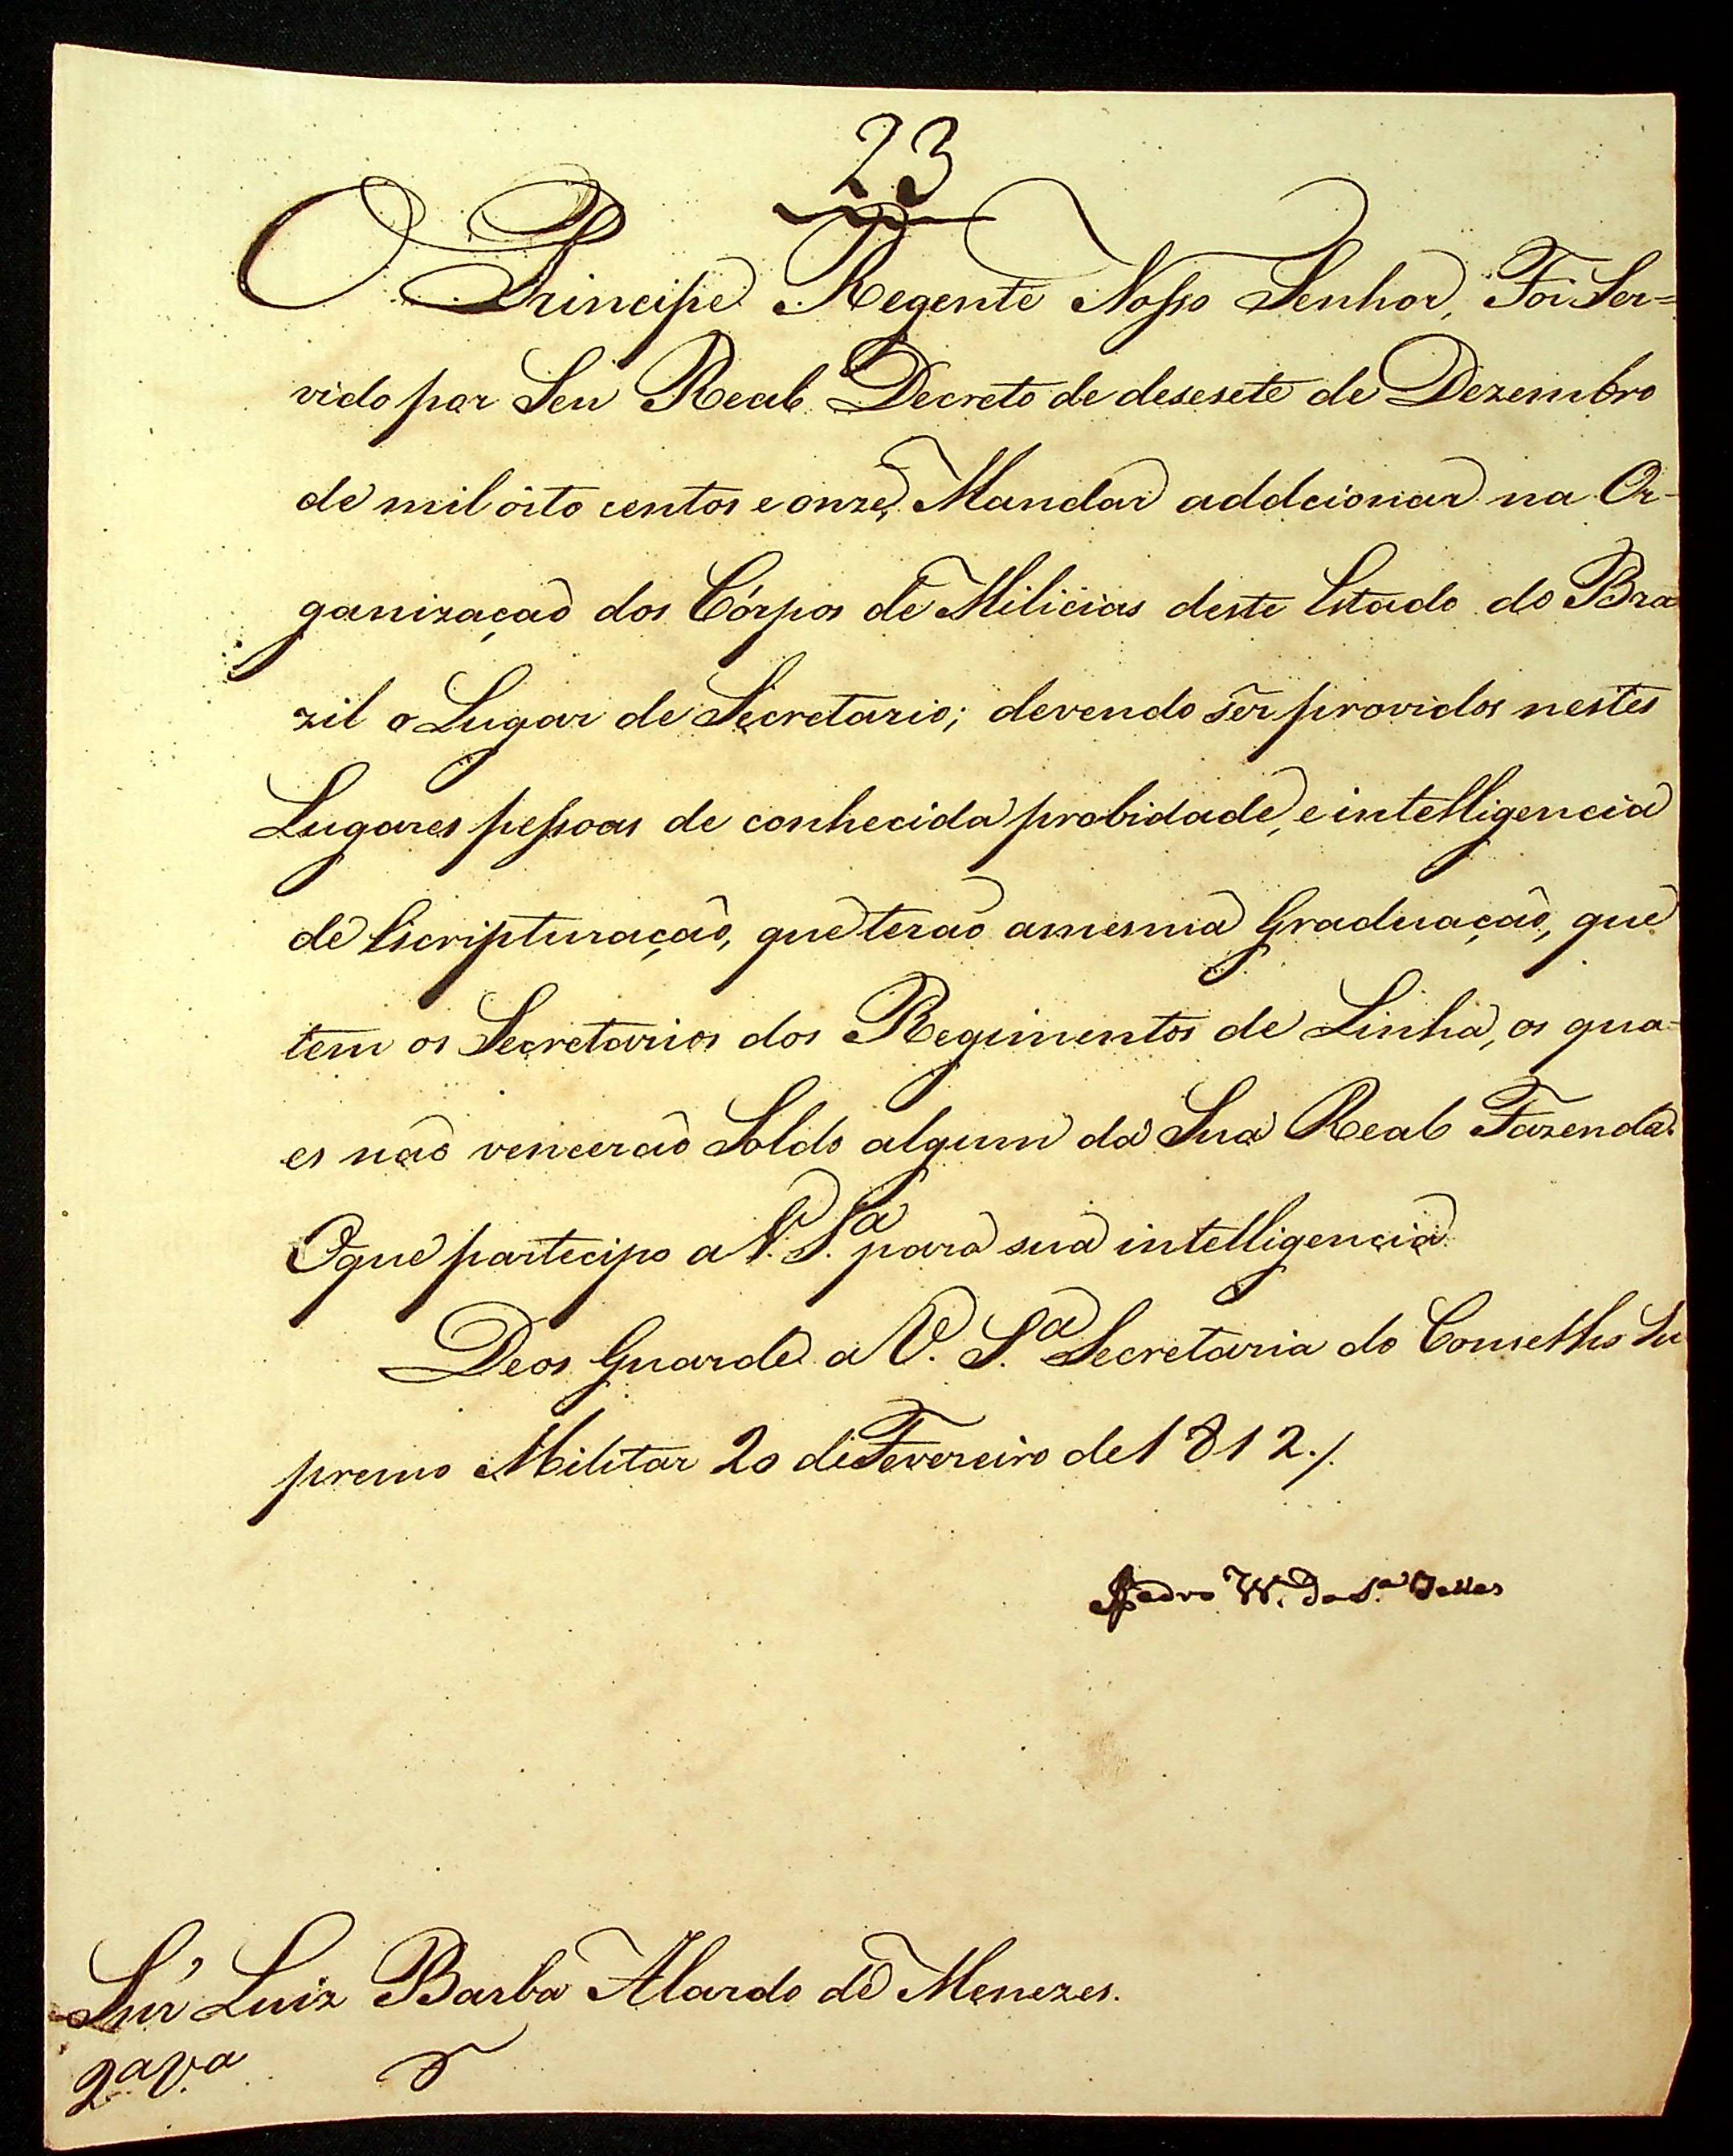 23
O Principe Regente Nosso Senhor, Foi Ser=
vido por Seu Real Decreto de desesete de Dezembro
de mil oito centos e onze, Mandar addcionar na Or-
ganizaçaõ dos Córpos de Milicias deste Estado do Bra
zil o Lugar de Secretario; devendo ser providos nestes
Lugares pessoas de conhecida probidade, e intelligencia
de Escripturaçaõ, que teraõ a mesma Graduaçaõ, que
tem os Secretarios dos Regimentos de Linha, os qua-
es naõ venceraõ Soldo algum da Sua Real Fazenda.
O que partecipo a V. S.ª para sua intelligencia.
Deos Guarde a V. S.ª Secretaria do Conselho Su
premo Militar 20 de Fevereiro de 1812./.
Pedro W. da S.ª Telles
Snr' Luiz Barba Alardo de Menezes.
2ª V.ª